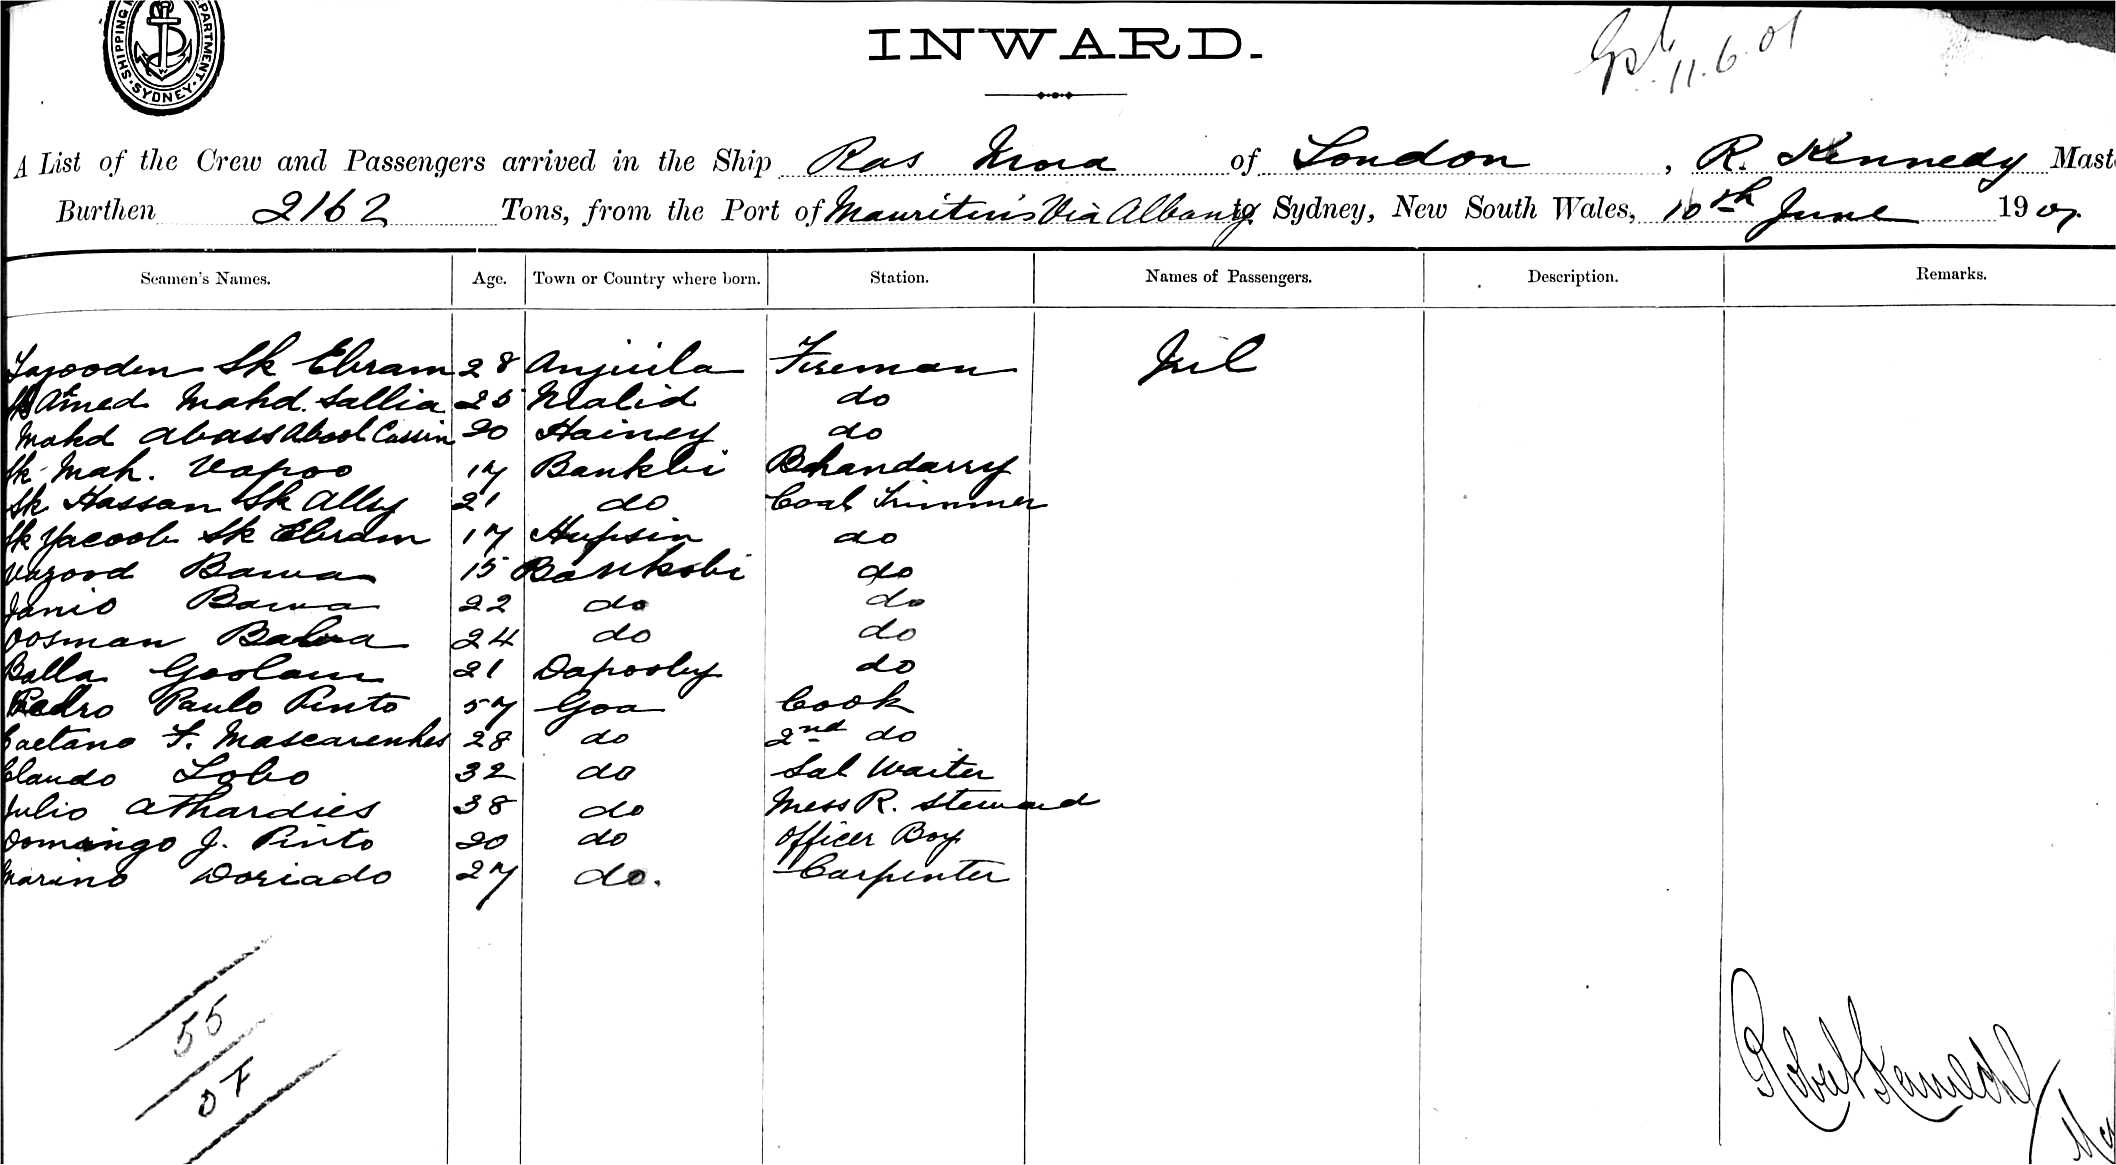 SHIPPING DEPARTMENT. SYDNEY.
INWARD.
11.6.01
A List of the Crew and Passengers arrived in the Ship Ras Mora of London, R. Kennedy Mast
Burthen 2162 Tons, from the Port of Mauritius Via Albany to Sydney, New South Wales, 10th June 1901
Seamen's Names. Age. Town or Country where born. Station. Names of Passengers. Description. Remarks.
Sk Ebram 28 Anjuila Fireman Nil
Sk Ahmed Mahd. Sallia 25 Malid do
Mahd Abass Abool Cassin 20 Hainey do
Sk Mah. Vapoo 17 Bankbi Bhandarry
Sk Hassan Sk Ally 21 do Coal Trimmer
Sk Yacoob Sk Ebram 17 Hupsin do
Bawa 15 Bankobi do
Janio Bawa 22 do do
Oosman Bawa 24 do do
Balla Goolam 21 Dapooly do
Pedro Paulo Pinto 57 Goa Cook
Caetano F. Mascarenhes 28 do 2nd do
Claudo Lobo 32 do Sal Waiter
Julio Athardies 38 do Mess R. Steward
Domingo J. Pinto 20 do Officer Boy
Marino Doriado 27 do. Carpenter
55
OF
Robert Kennedy